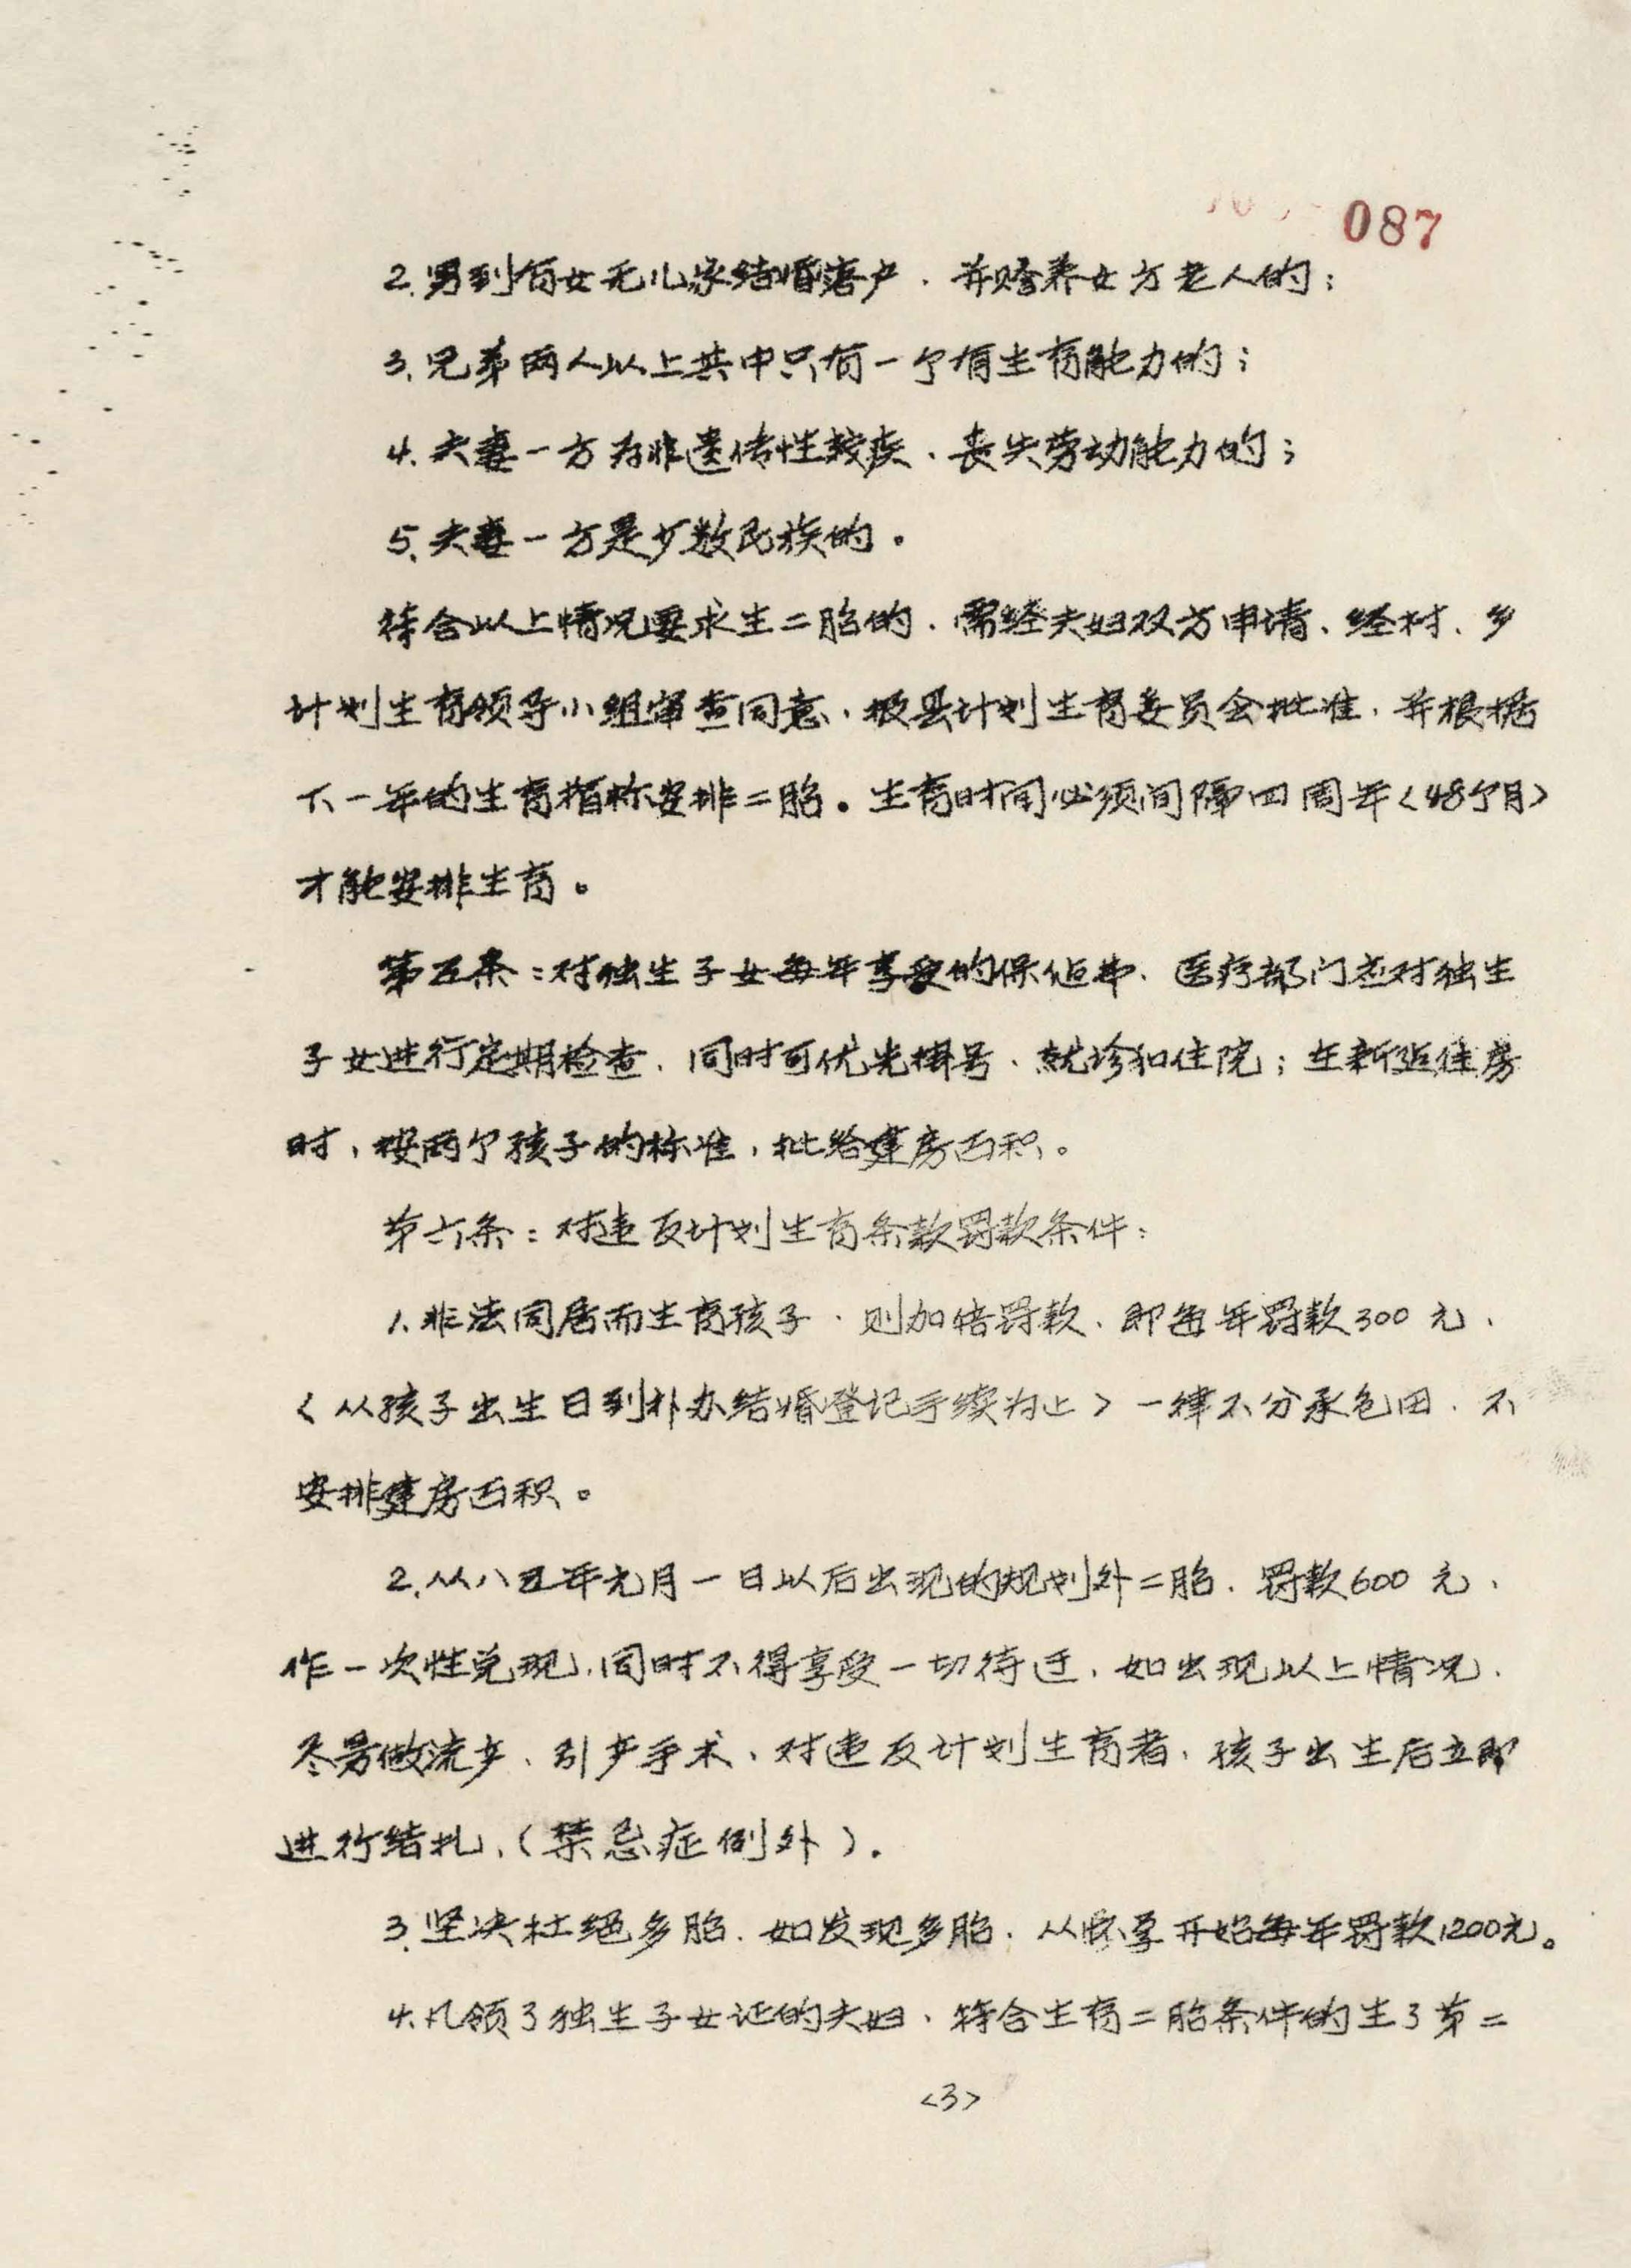 087
2.男到有女无儿家结婚落户、并赡养女方老人的；
3.兄弟两人以上其中只有一个有生育能力的；
4.夫妻一方为非遗传性残疾、丧失劳动能力的；
5.夫妻一方是少数民族的。
符合以上情况要求生二胎的、需经夫妇双方申请、经村、乡
计划生育领导小组审查同意、报县计划生育委员会批准、并根据
下一年的生育指标安排二胎。生育时间必须间隔四周年<48个月>
才能安排生育。
第五条：对独生子女每年享受的保健费、医疗部门应对独生
子女进行定期检查、同时可优先掛号、就诊和住院；在新建住房
时、按两个孩子的标准、批给建房面积。
第六条：对违反计划生育条款罚款条件：
1.非法同居而生育孩子、则加倍罚款、即每年罚款300元、
<从孩子出生日到补办结婚登记手续为止>一律不分承包田、不
安排建房面积。
2.从八五年元月一日以后出现的规划外二胎、罚款600元、
作一次性兑现、同时不得享受一切待迂、如出现以上情况、
尽早做流产、引产手术、对违反计划生育者、孩子出生后立即
进行结扎、(禁忌症例外)。
3.坚决杜绝多胎、如发现多胎、从怀孕开始每年罚款1200元。
4.凡领了独生子女证的夫妇、符合生育二胎条件的生了第二
<3>